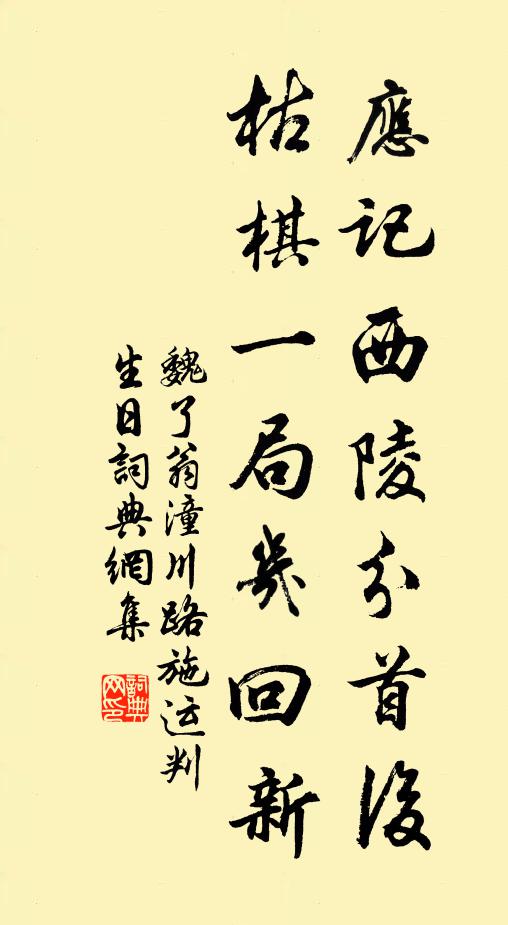 應記西陵分首後
枯棋一局幾回新
魏了翁潼川路施运判
生日詞典網集
詞典网印